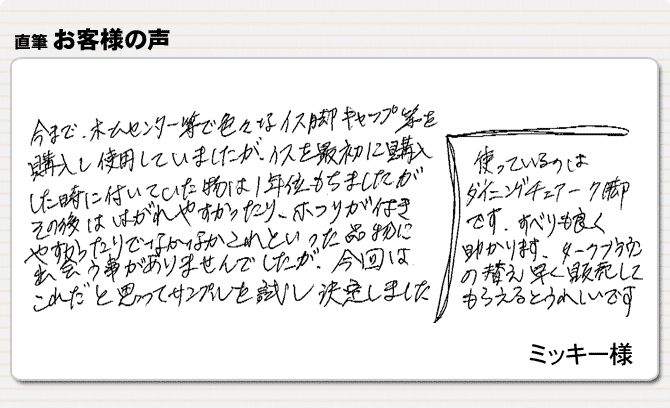 直筆 お客様の声
今まで、ホームセンター等で色々なイス脚キャップ等を
購入し使用していましたが、イスを最初に購入
した時に付いていた物は1年位もちましたが
その後ははがれやすかったり、ホコリが付き
やすかったりでなかなかこれといった品物に
出会う事がありませんでしたが、今回は
これだと思ってサンプルを試し決定しました
使っているのは
ダイニングチェアー ク脚
です。すべりも良く
助かります、ダークブラウン
の替え早く販売して
もらえるとうれしいです
ミッキー様